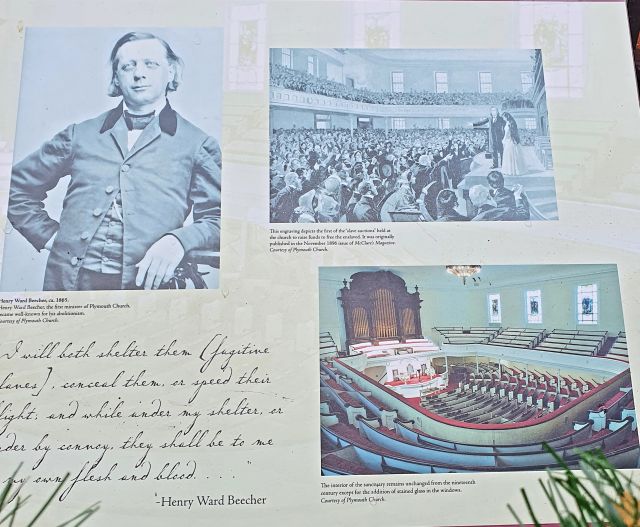 Henry Ward Beecher, ca. 1865.
Henry Ward Beecher, the first minister of Plymouth Church,
became well-known for his abolitionism.
Courtesy of Plymouth Church.
This engraving depicts the first of the 'slave auctions' held at
the church to raise funds to free the enslaved. It was originally
published in the November 1896 issue of McClure's Magazine.
Courtesy of Plymouth Church.
I will both shelter them (fugitive
slaves], conceal them, or speed their
flight, and while under my shelter, or
under by convoy, they shall be to me
my own flesh and blood. . . .
-Henry Ward Beecher
The interior of the sanctuary remains unchanged from the nineteenth
century except for the addition of stained glass in the windows.
Courtesy of Plymouth Church.